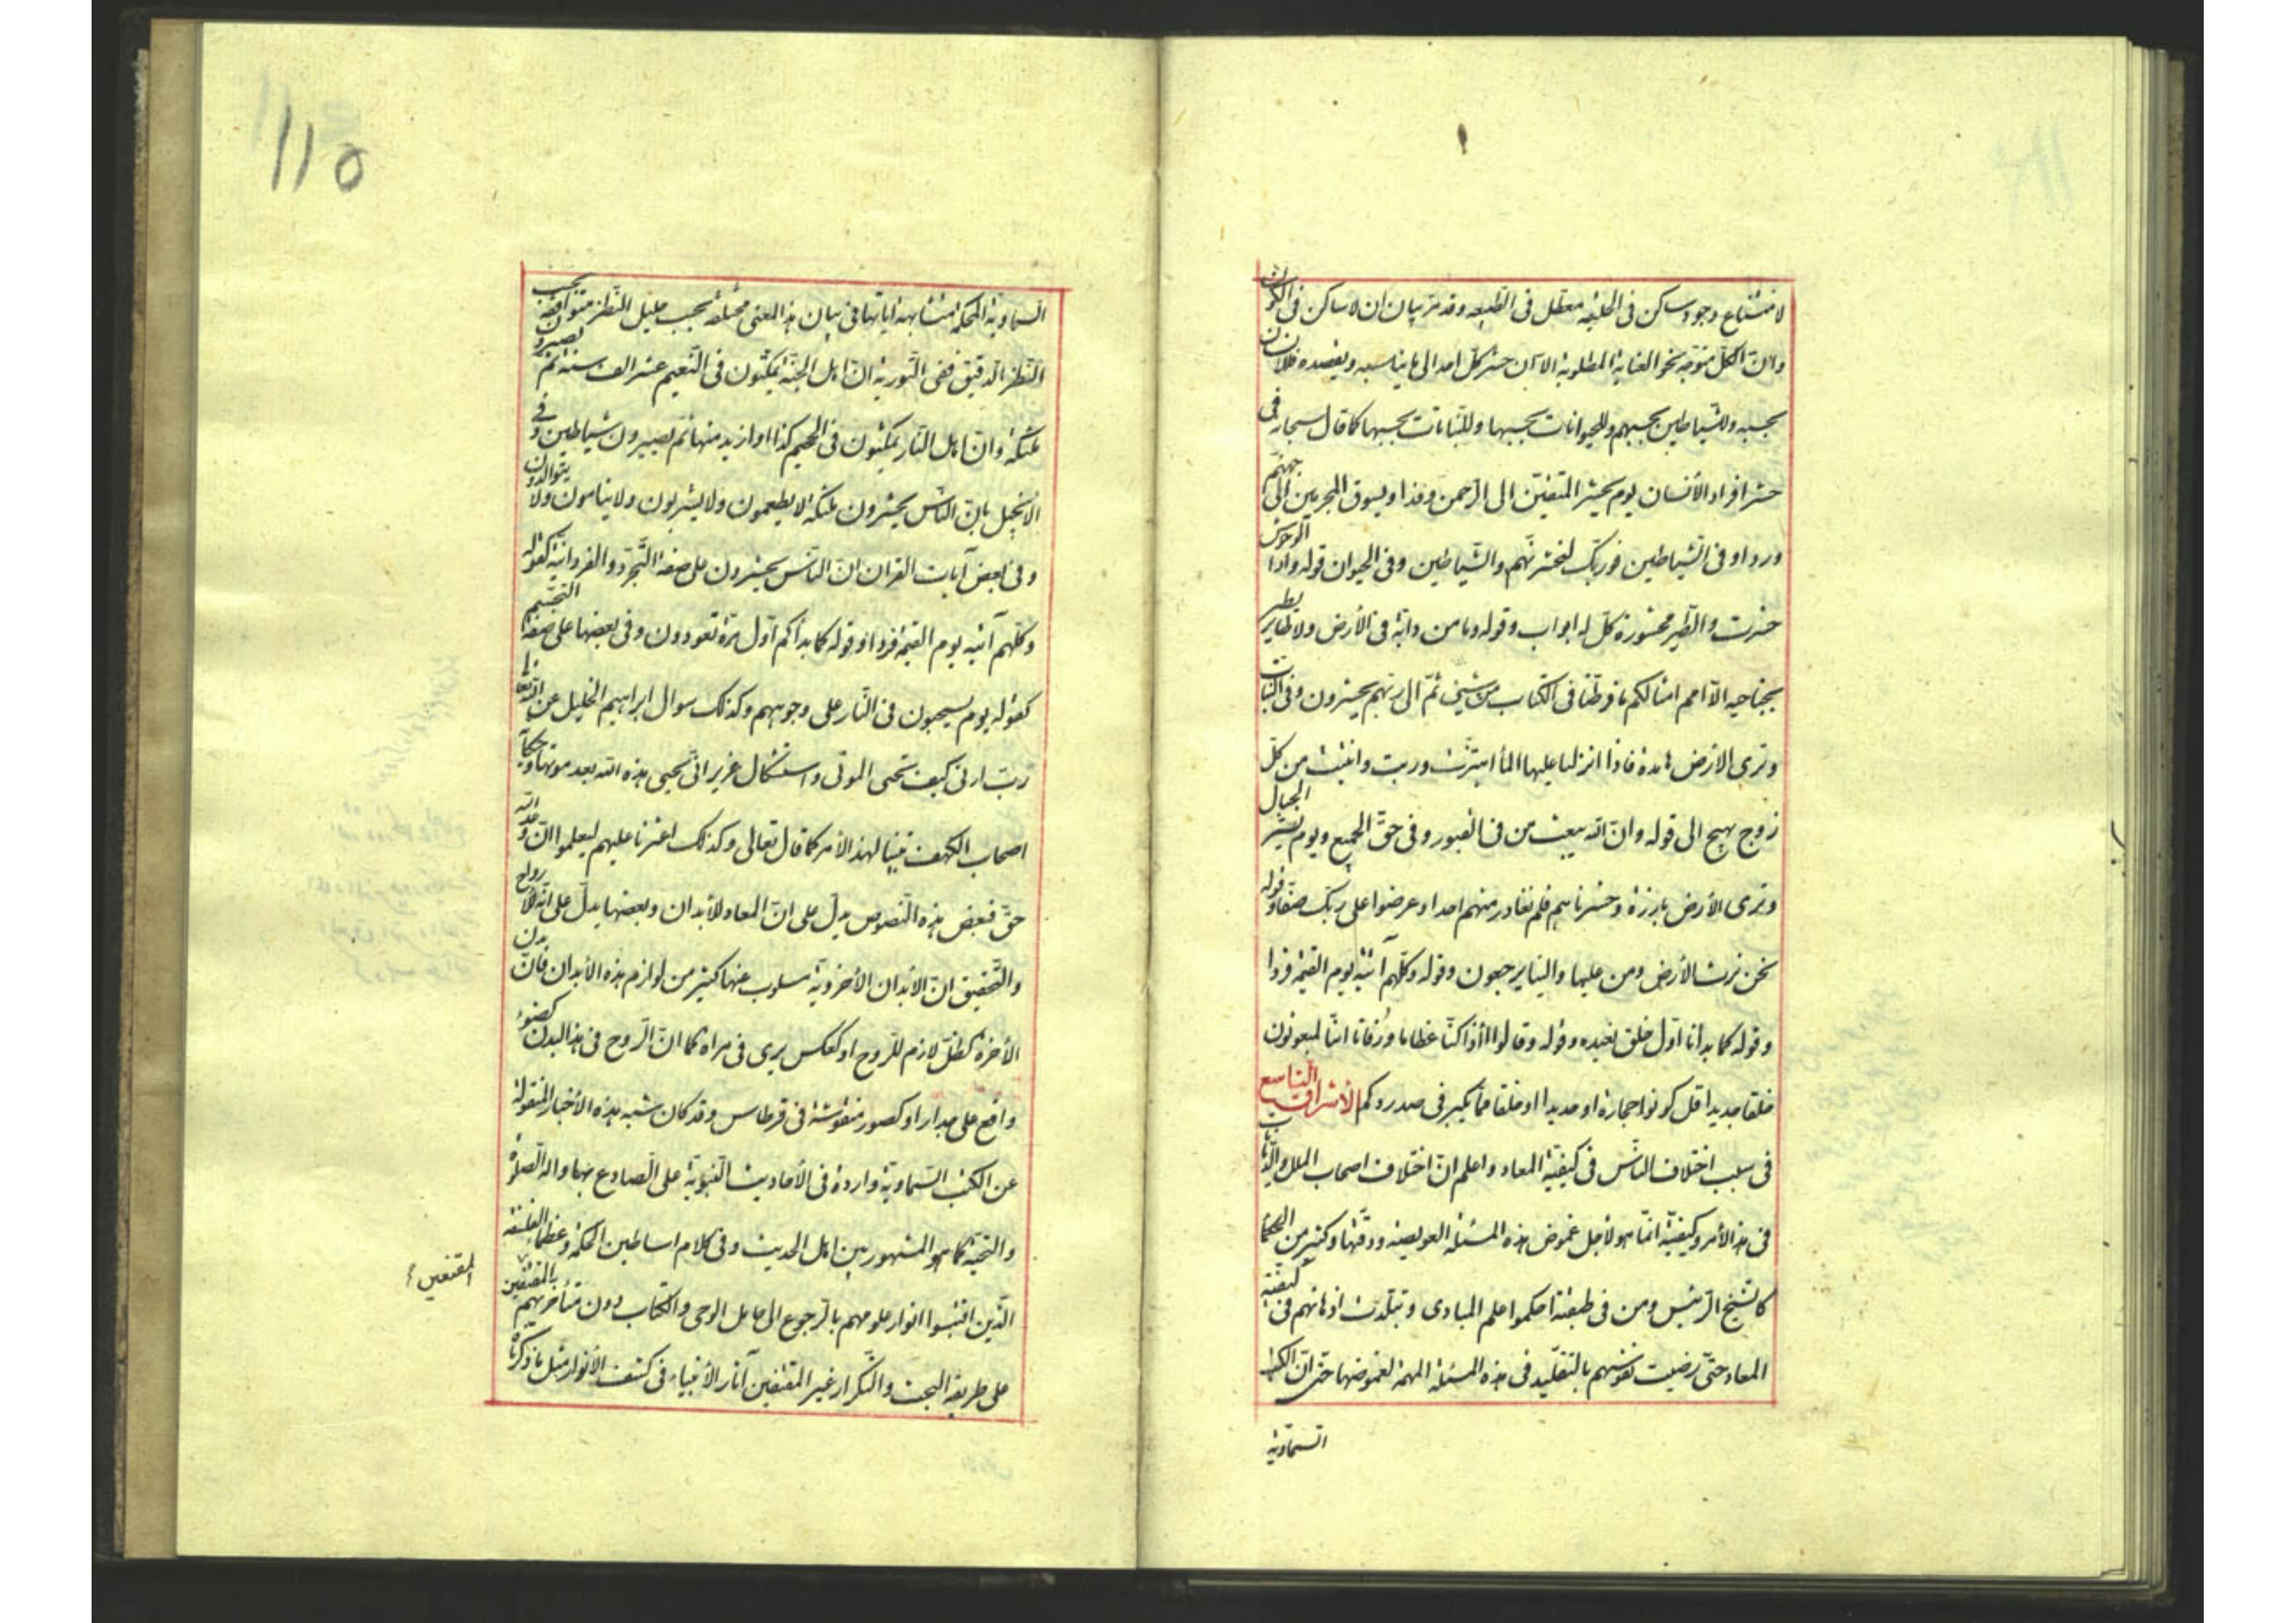 لامتناع وجود ساكن فى الخليقه معطل فى الطبيعه وقد مر بيان ان لا ساكن فى الكون
وان الكل متوجه نحو الغاية المطلوبة الا ان حشر كل احد الى ما يناسبه ويقصده فللانسان
بحسبه وللشياطين بحسبهم وللحيوانات بحسبها وللنباتات بحسبها كما قال سبحانه فى
حشر افراد الأنسان يوم يحشر المتقين الى الرحمن وفدا ويسوق المجرمين الى جهنم
وردا وفى الشياطين فوربك لنحشرنهم والشياطين وفى الحيوان قوله واذا الوحوش
حشرت والطير محشورة كل له اواب وقوله وما من دابة فى الأرض ولا طاير يطير
بجناحيه الا امم امثالكم ما فرطنا فى الكتاب من شيئ ثم الى ربهم يحشرون وفى النبات
وترى الارض هامدة فاذا انزلنا عليها الماء اهتزت وربت وانبتت من كل
زوج بهيج الى قوله وان الله يبعث من فى القبور وفى حق الجميع ويوم نسير الجبال
وترى الأرض بارزة وحشرناهم فلم نغادر منهم احدا وعرضوا على ربك صفا وقوله
نحن نرث الأرض ومن عليها والينا يرجعون وقوله وكلهم آتيه يوم القيمة فردا
وقوله كما بدانا اول خلق نعيده وقوله وقالوا أاذا كنا عظاما ورفاتا ائنا لمبعوثون
خلقا جديدا قل كونوا حجارة او حديدا او خلقا مما يكبر فى صدوركم الأشراق التاسع
فى سبب اختلاف الناس فى كيفية المعاد واعلم ان اختلاف اصحاب الملل والديانات
فى هذا الأمر وكيفيته انما هو لأجل غموض هذه المسئلة العويصة ودقتها وكثير من الحكما
كالشيخ الرئيس ومن فى طبقته احكموا علم المبادى وتبلدت اذهانهم فى كيفية
المعاد حتى رضيت نفوسهم بالتقليد فى هذه المسئلة المهمة لغموضها حتى ان الكتب
السماوية
110
السماوية المحكمة متشابهة اياتها فى بيان هذا المعنى مختلفة بحسب جليل النظر متوافقة بحسب
النظر الدقيق ففى التورية ان اهل الجنة يمكثون فى النعيم عشر الف سنة ثم يصيرون
ملئكة وان اهل النار يمكثون فى الجحيم كذا او ازيد منها ثم يصيرون شياطين وفى
الأنجيل بان الناس يحشرون ملئكة لا يطعمون ولا يشربون ولا ينامون ولا يتوالدون
وفى بعض آيات القران ان الناس يحشرون على صفة التجرد والفردانية كقوله
وكلهم آتيه يوم القيمة فردا وقوله كما بدأكم اول مرة تعودون وفى بعضها على صفة التجسيم
كقوله يوم يسحبون فى النار على وجوههم وكذلك سوال ابراهيم الخليل عن الله تعالى
رب ارنى كيف تحيى الموتى واستشكال عزير انى يحيى هذه الله بعد موتها وحكاية
اصحاب الكهف تبيينا لهذا الأمر كما قال تعالى وكذلك اعثرنا عليهم ليعلموا ان وعد الله
حق فبعض هذه النصوص يدل على ان المعاد للأبدان وبعضها يدل على انه للأرواح
والتحقيق ان الأبدان الأخروية مسلوب عنها كثير من لوازم هذه الأبدان فان بدن
الأخرة كظل لازم للروح او كعكس يرى فى مراة كما ان الروح فى هذا البدن كضوء
واقع على جدار او كصور منقوشة فى قرطاس وقد كان شبه هذه الأخبار المنقولة
عن الكتب السماوية واردة فى الأحاديث النبوية على الصادع بها واله الصلوة
والتحية كما هو المشهور بين اهل الحديث وفى كلام اساطين الحكمة وعظماء الفلسفة
الذين اقتبسوا انوار علومهم بالرجوع الى حامل الوحى والكتاب دون متأخريهم بالمقتفين
المقتفين
على طريقة البحث والتكرار غير المقتفين آثار الأنبياء فى كشف الأنوار مثل ما ذكرناه